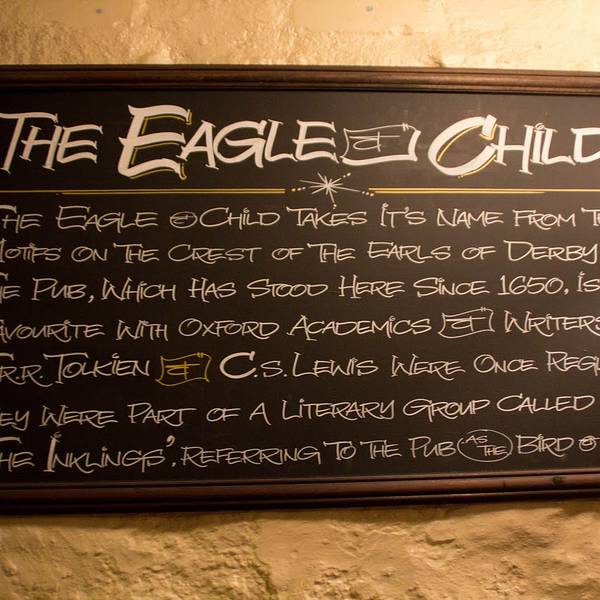 THE EAGLE & CHILD
THE EAGLE & CHILD TAKES IT'S NAME FROM TH
OTIFS ON THE CREST OF THE EARLS OF DERBY
E PUB, WHICH HAS STOOD HERE SINCE 1650, IS
AVOURITE WITH OXFORD ACADEMICS & WRITERS
R.R. TOLKIEN & C.S. LEWIS WERE ONCE REGU
EY WERE PART OF A LITERARY GROUP CALLED
THE INKLINGS', REFERRING TO THE PUB AS THE BIRD &